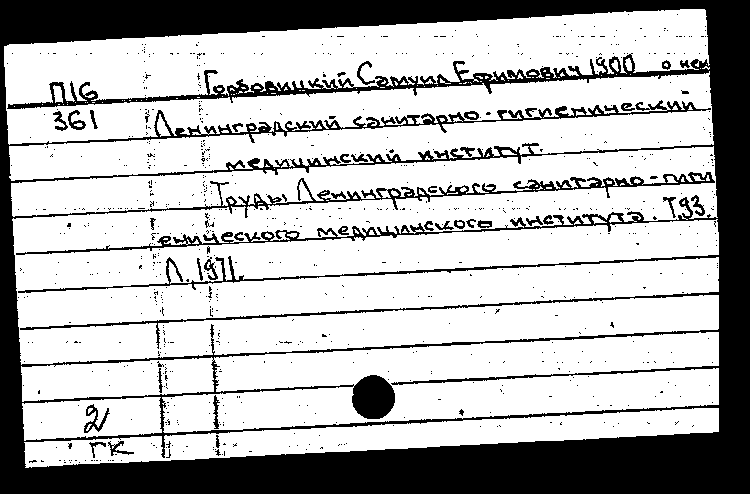 П16 Горбовицкий, Самуил Ефимович, 1900 о нем
361 Ленинградский санитарно-гигиенический
медицинский институт.
Труды Ленинградского санитарно-гиги
енического медицинского института. Т.93.
Л., 1971.
2
ГК